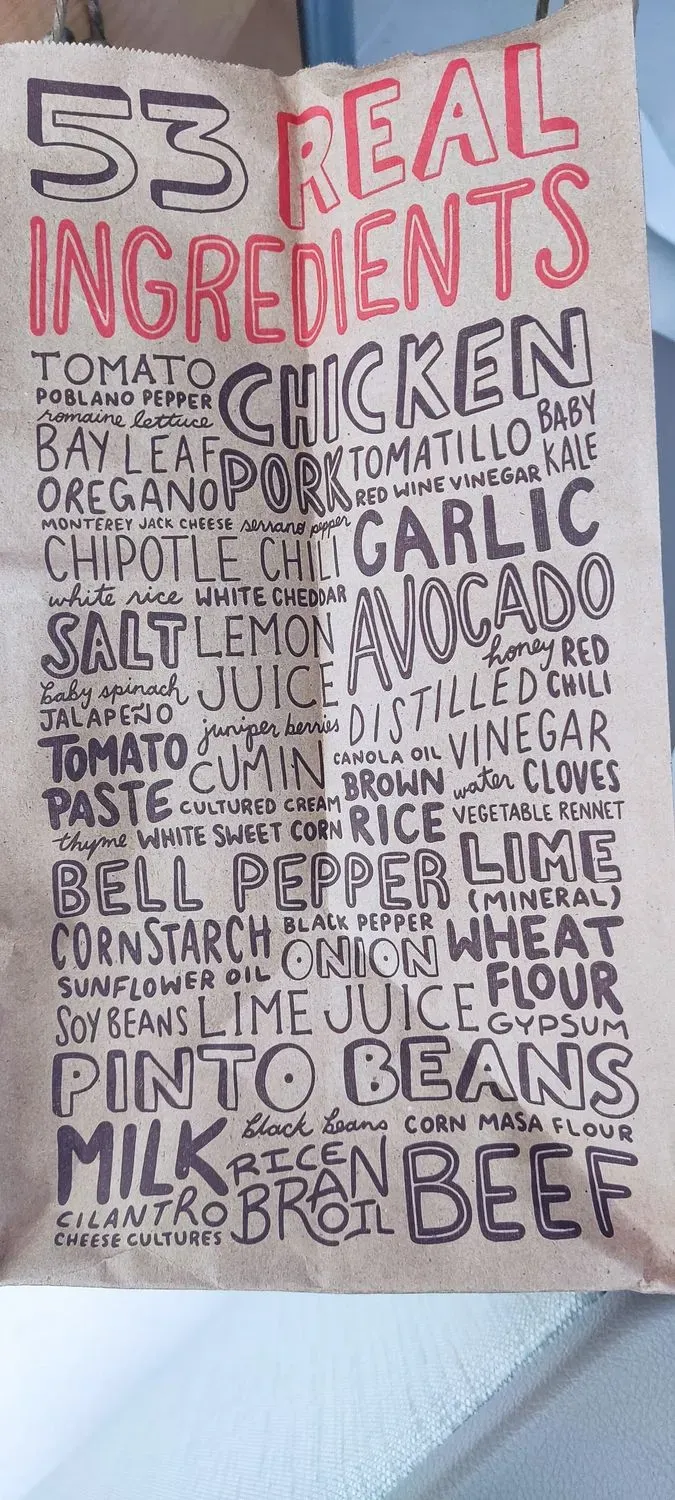 53 REAL
INGREDIENTS
TOMATO
POBLANO PEPPER
romaine lettuce
CHICKEN
BAY LEAF
OREGANO
PORK
TOMATILLO
BABY
KALE
RED WINE VINEGAR
MONTEREY JACK CHEESE
serrano pepper
CHIPOTLE CHILI
GARLIC
white rice
WHITE CHEDDAR
SALT
LEMON
JUICE
AVOCADO
honey
RED
CHILI
baby spinach
JALAPEÑO
juniper berries
DISTILLED
VINEGAR
TOMATO
PASTE
CUMIN
CANOLA OIL
BROWN
RICE
water
CLOVES
CULTURED CREAM
VEGETABLE RENNET
thyme
WHITE SWEET CORN
BELL PEPPER
LIME
(MINERAL)
CORNSTARCH
BLACK PEPPER
ONION
WHEAT
FLOUR
SUNFLOWER OIL
SOY BEANS
LIME JUICE
GYPSUM
PINTO BEANS
MILK
black beans
CORN MASA FLOUR
RICE
BRAN
OIL
BEEF
CILANTRO
CHEESE CULTURES